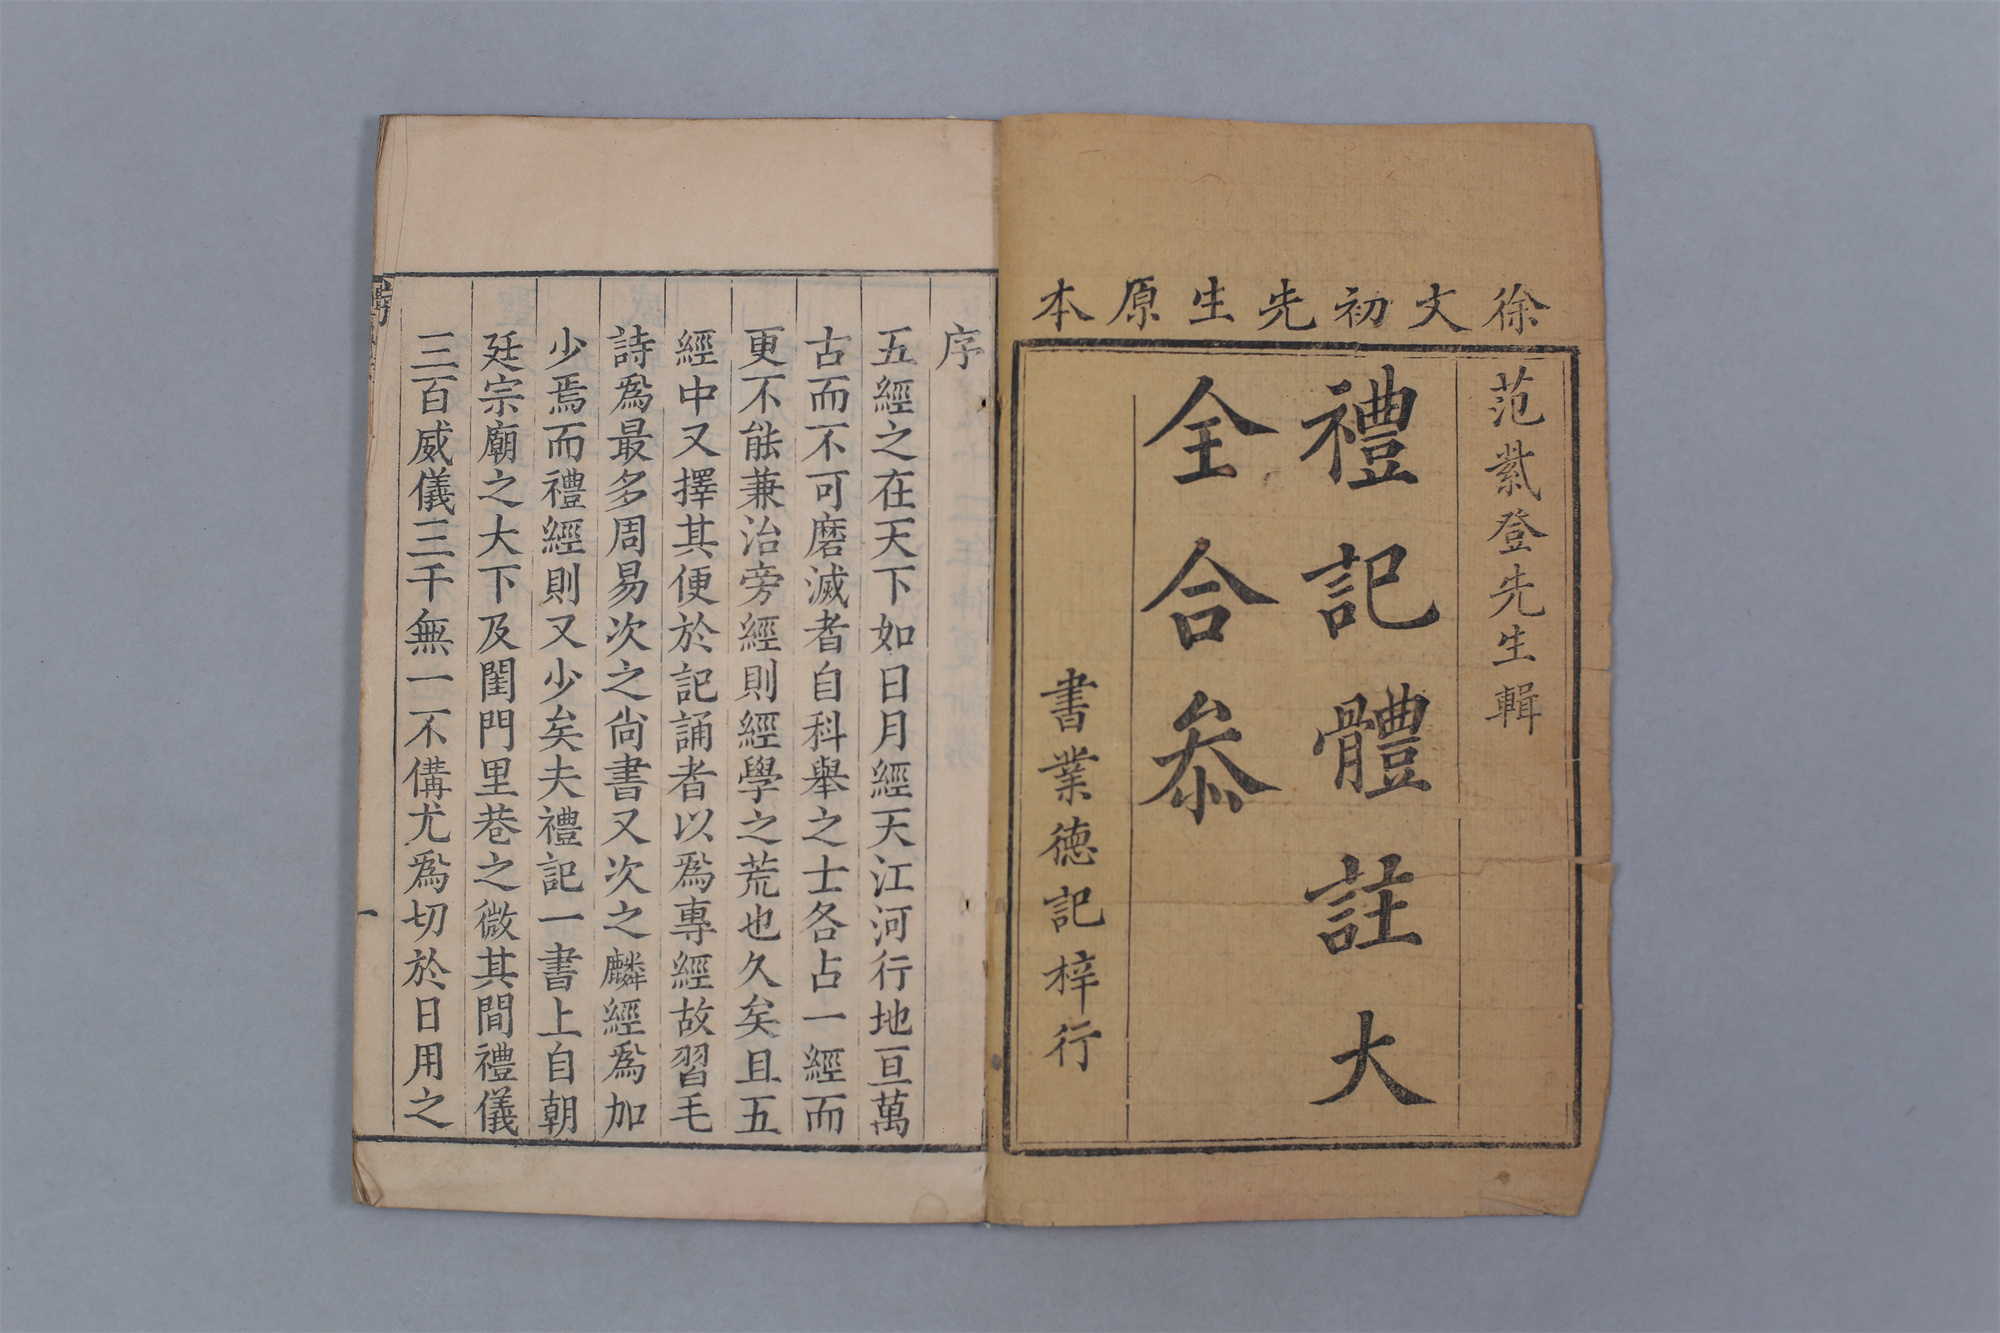 徐文初先生原本
范紫登先生輯
禮記體註大
全合叅
書業德記梓行
序
五經之在天下如日月經天江河行地亘萬
古而不可磨滅者自科舉之士各占一經而
更不能兼治旁經則經學之荒也久矣且五
經中又擇其便於記誦者以爲專經故習毛
詩爲最多周易次之尚書又次之麟經爲加
少焉而禮經則又少矣夫禮記一書上自朝
廷宗廟之大下及閨門里巷之微其間禮儀
三百威儀三千無一不備尤爲切於日用之
一